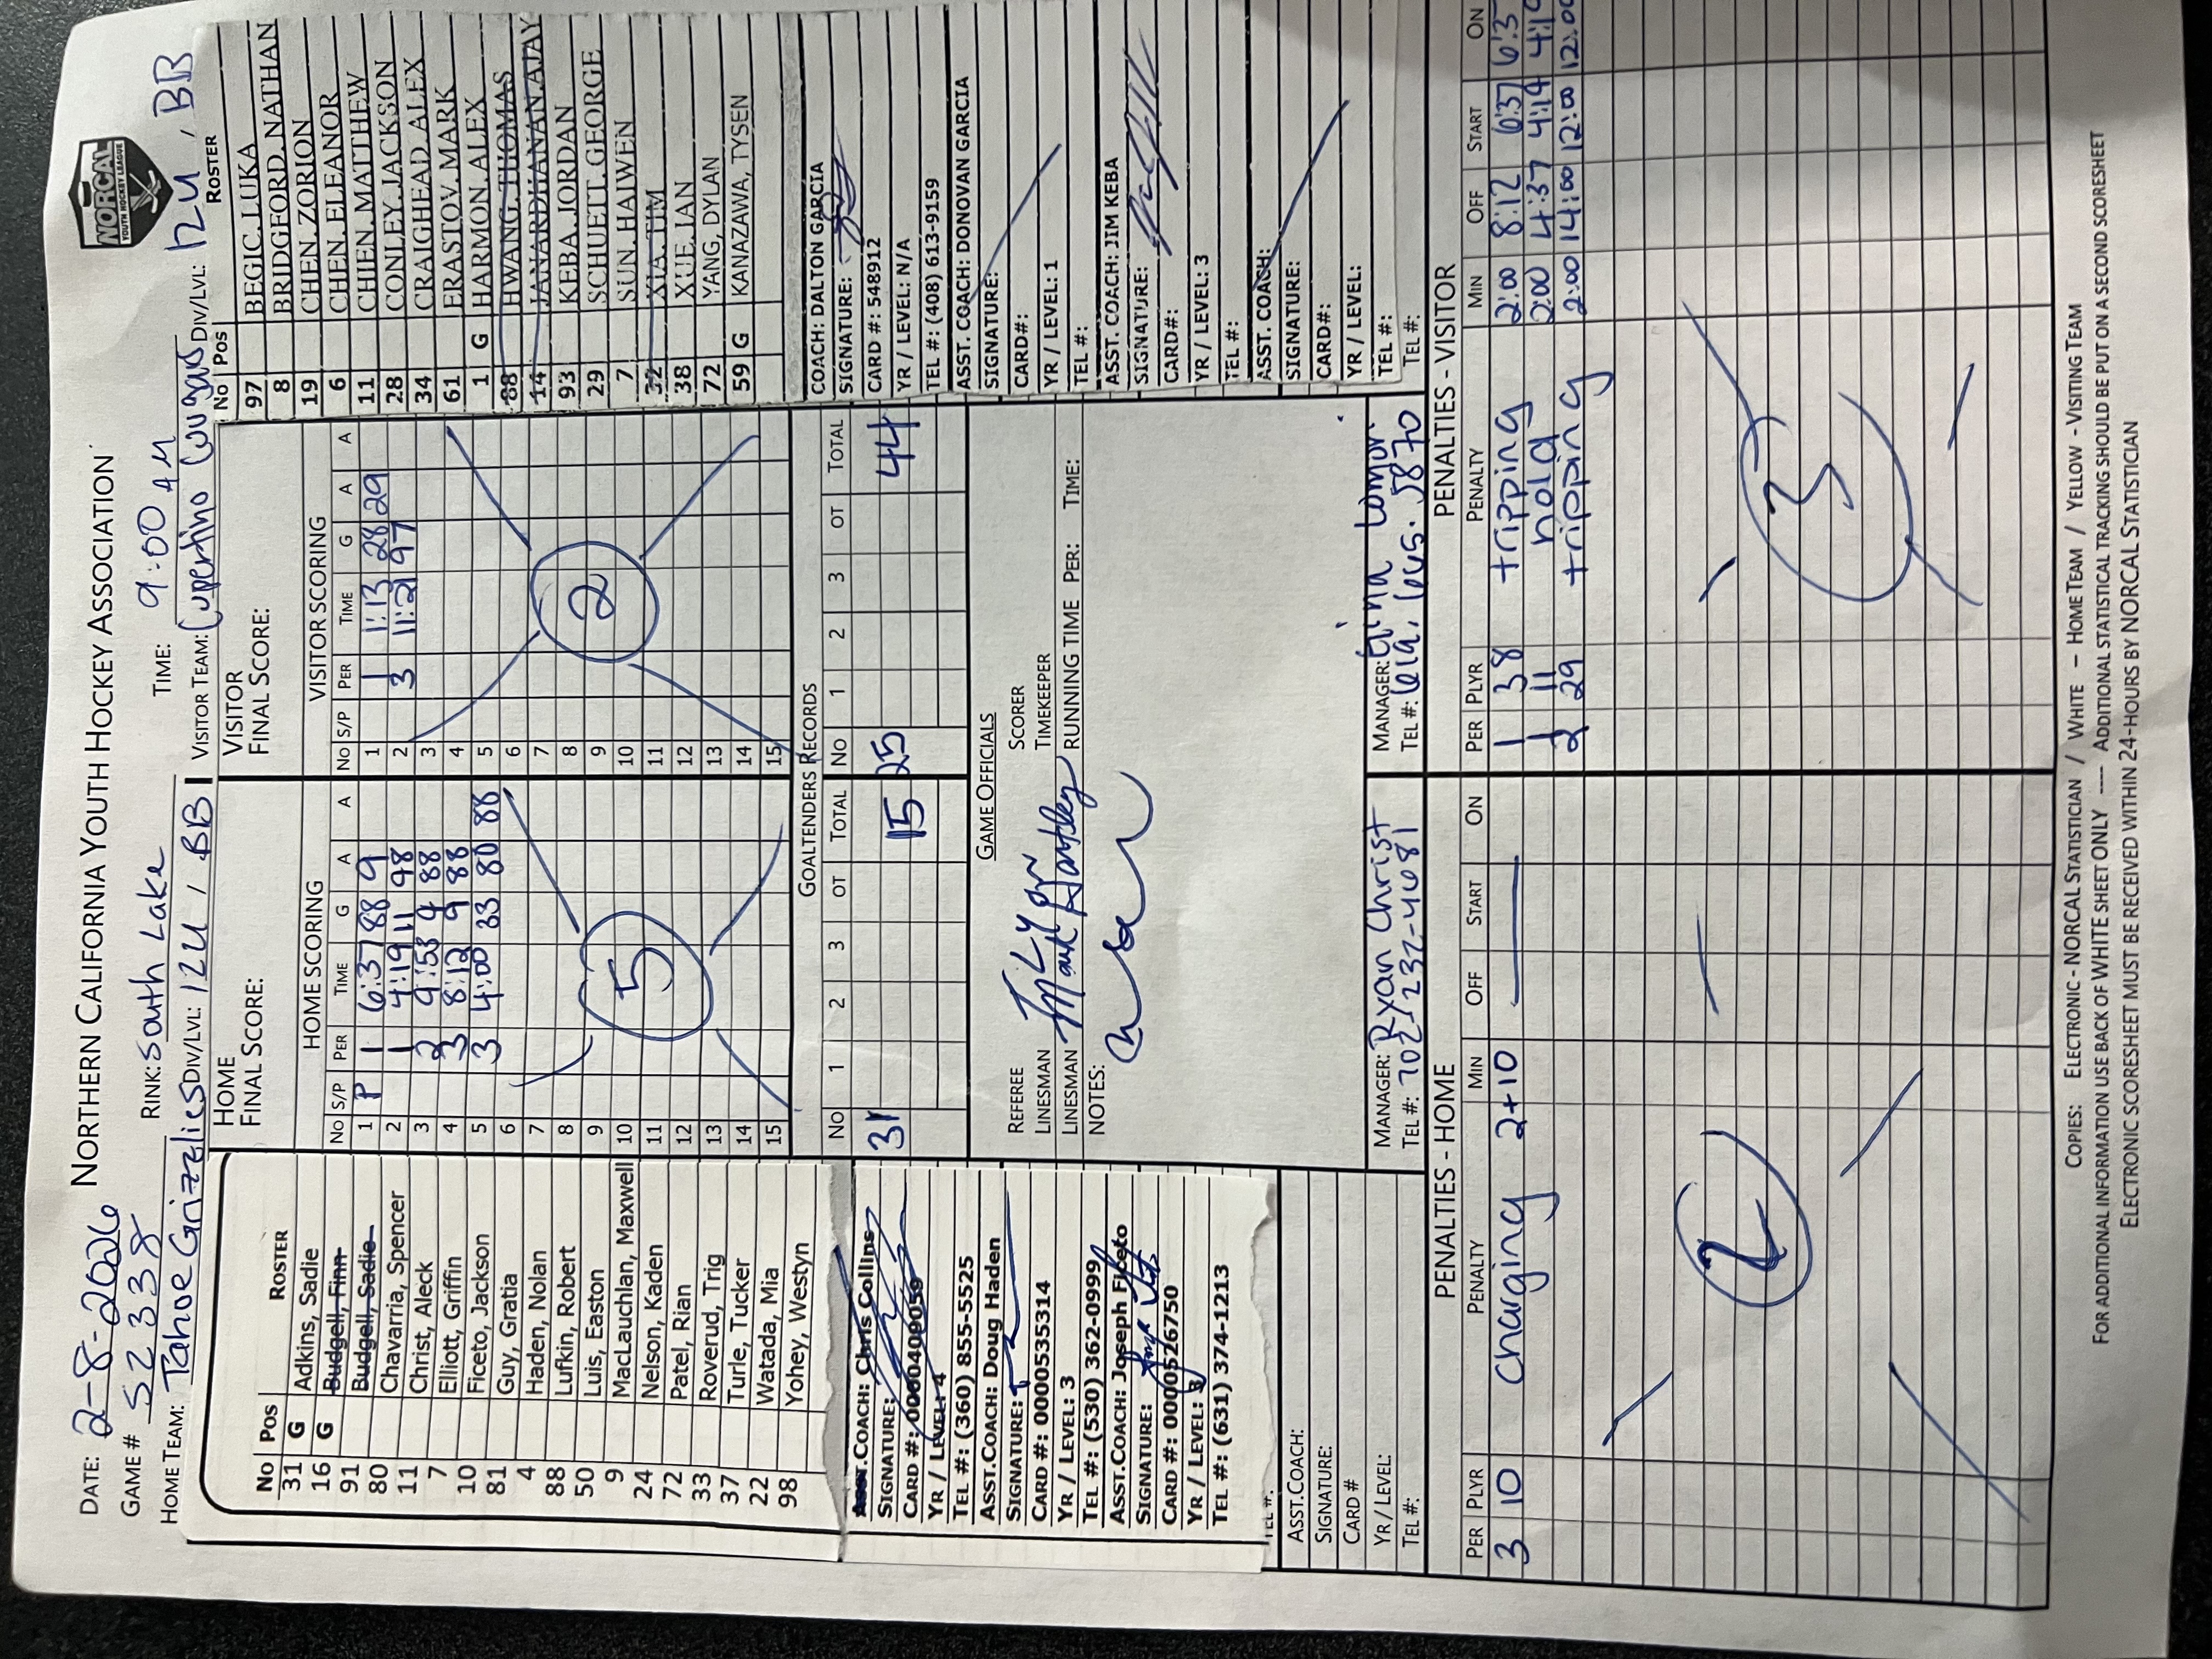 DATE: 2-8-2026 NORTHERN CALIFORNIA YOUTH HOCKEY ASSOCIATION
NORCAL
YOUTH HOCKEY LEAGUE
GAME # 52338 RINK: South Lake TIME: 9:00 AM
HOME TEAM: Tahoe Grizzlies DIV/LVL: 12U / BB VISITOR TEAM: Cupertino Cougars DIV/LVL: 12U, BB
No Pos ROSTER
31 G Adkins, Sadie
16 G Budgell, Finn
91 Budgell, Sadie
80 Chavarria, Spencer
11 Christ, Aleck
7 Elliott, Griffin
10 Ficeto, Jackson
81 Guy, Gratia
4 Haden, Nolan
88 Lufkin, Robert
50 Luis, Easton
9 MacLauchlan, Maxwell
24 Nelson, Kaden
72 Patel, Rian
33 Roverud, Trig
37 Turle, Tucker
22 Watada, Mia
98 Yohey, Westyn
ASST.COACH: Chris Collins
SIGNATURE:
CARD #: 0000409059
YR / LEVEL: 4
TEL #: (360) 855-5525
ASST.COACH: Doug Haden
SIGNATURE:
CARD #: 0000535314
YR / LEVEL: 3
TEL #: (530) 362-0999
ASST.COACH: Joseph Ficeto
SIGNATURE:
CARD #: 0000526750
YR / LEVEL: 3
TEL #: (631) 374-1213
TEL #:
ASST.COACH:
SIGNATURE:
CARD #
YR / LEVEL:
TEL #:
HOME
FINAL SCORE:
HOME SCORING
No S/P PER TIME G A A
1 P 1 6:37 88 9
2 1 4:19 11 98
3 2 9:53 9 88
4 3 8:12 9 88
5 3 4:00 33 80 88
6
7
8
9
10
11
12
13
14
15
5
VISITOR
FINAL SCORE:
VISITOR SCORING
No S/P PER TIME G A A
1 1 1:13 28 29
2 3 11:21 97
3
4
5
6
7
8
9
10
11
12
13
14
15
2
GOALTENDERS RECORDS
No 1 2 3 OT TOTAL No 1 2 3 OT TOTAL
31 15 25 44
GAME OFFICIALS
REFEREE SCORER
LINESMAN TIMEKEEPER
LINESMAN RUNNING TIME PER: TIME:
NOTES:
MANAGER: Ryan Christ
TEL #: 702-237-4081
MANAGER:
TEL #:
No Pos ROSTER
97 BEGIC, LUKA
8 BRIDGFORD, NATHAN
19 CHEN, ZORION
6 CHEN, ELEANOR
11 CHEN, MATTHEW
28 CONLEY, JACKSON
34 CRAIGHEAD, ALEX
61 ERASTOV, MARK
1 G HARMON, ALEX
88 HWANG, THOMAS
14 JANARDHANAN, AJAY
93 KEBA, JORDAN
29 SCHUETT, GEORGE
7 SUN, HAIWEN
32 XIA, TIM
38 XUE, IAN
72 YANG, DYLAN
59 G KANAZAWA, TYSEN
COACH: DALTON GARCIA
SIGNATURE:
CARD #: 548912
YR / LEVEL: N/A
TEL #: (408) 613-9159
ASST. COACH: DONOVAN GARCIA
SIGNATURE:
CARD#:
YR / LEVEL: 1
TEL #:
ASST. COACH: JIM KEBA
SIGNATURE:
CARD#:
YR / LEVEL: 3
TEL #:
ASST. COACH:
SIGNATURE:
CARD#:
YR / LEVEL:
TEL #:
TEL #:
PENALTIES - HOME
PER PLYR PENALTY MIN OFF START ON
3 10 Charging 2+10
2
PENALTIES - VISITOR
PER PLYR PENALTY MIN OFF START ON
1 38 tripping 2:00 8:12 6:37 6:3
1 11 hold 2:00 4:37 4:19 4:19
2 29 tripping 2:00 14:00 12:00 12:00
3
COPIES: ELECTRONIC - NORCAL STATISTICIAN / WHITE - HOME TEAM / YELLOW - VISITING TEAM
FOR ADDITIONAL INFORMATION USE BACK OF WHITE SHEET ONLY ---- ADDITIONAL STATISTICAL TRACKING SHOULD BE PUT ON A SECOND SCORESHEET
ELECTRONIC SCORESHEET MUST BE RECEIVED WITHIN 24-HOURS BY NORCAL STATISTICIAN